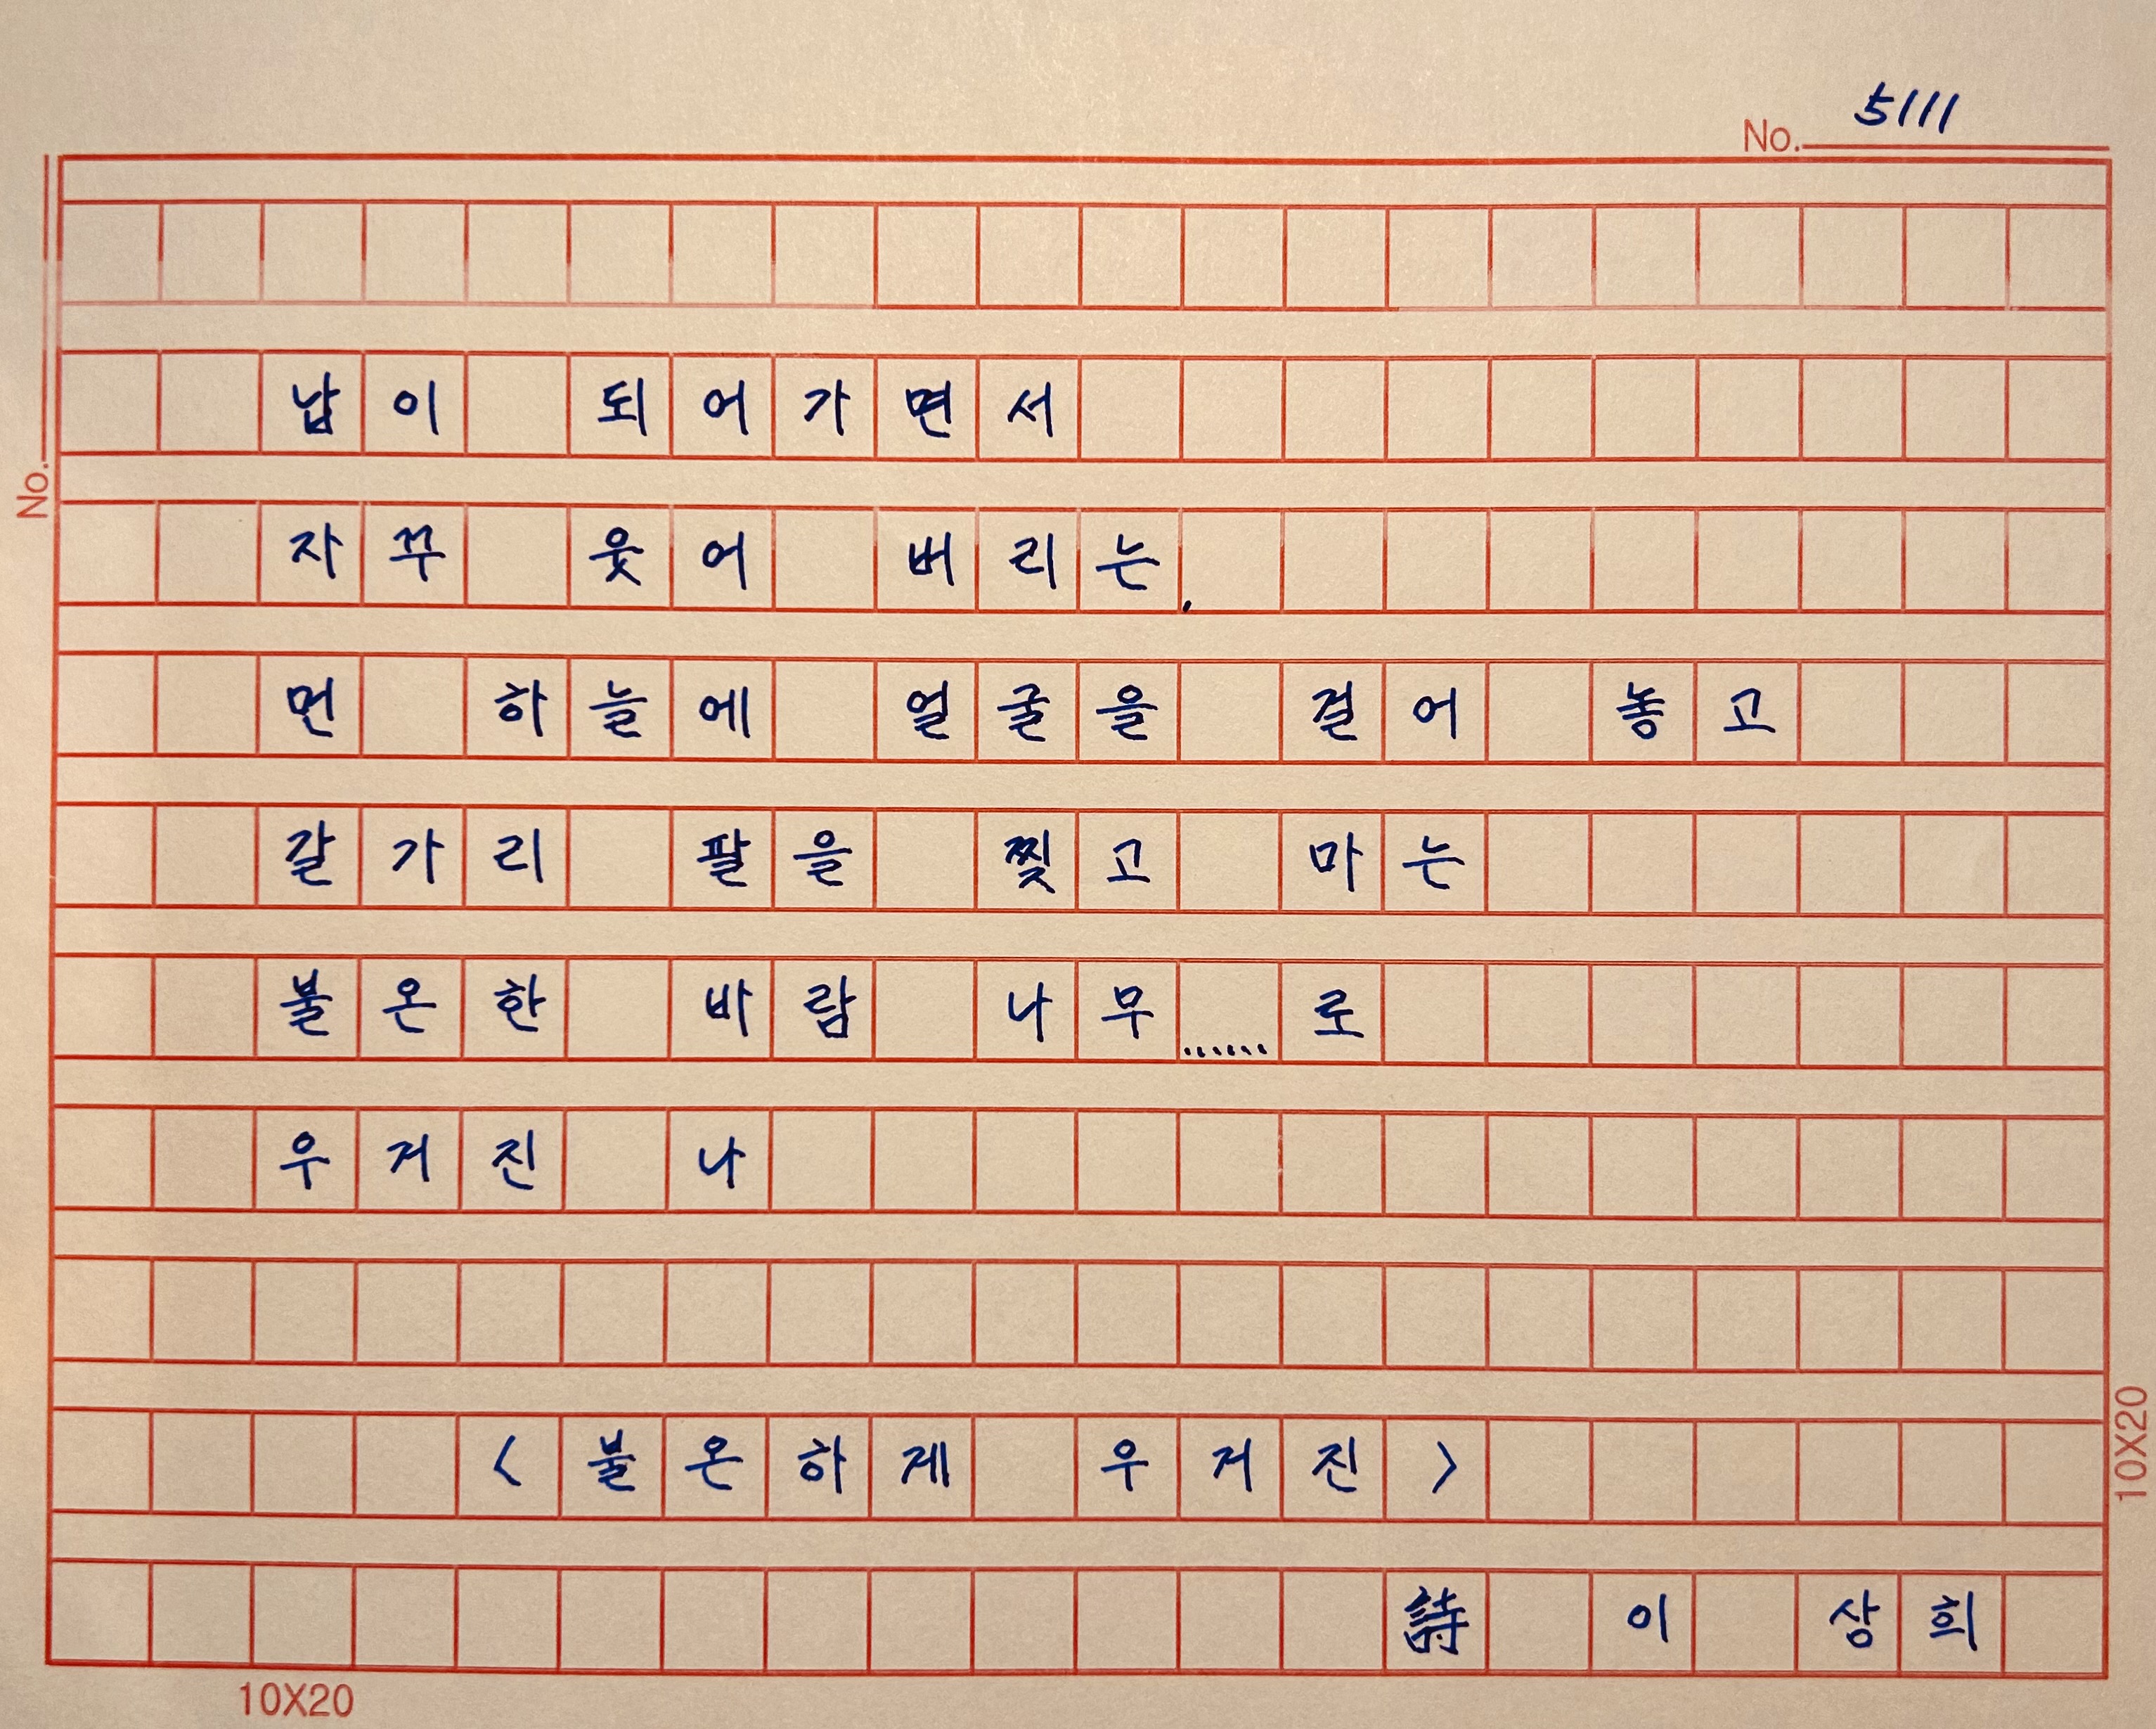 No. 5111
No.
납이 되어가면서
자꾸 웃어 버리는.
먼 하늘에 얼굴을 걸어 놓고
갈가리 팔을 찢고 마는
불온한 바람 나무......로
우거진 나
<불온하게 우거진>
詩 이 상희
10X20
10X20